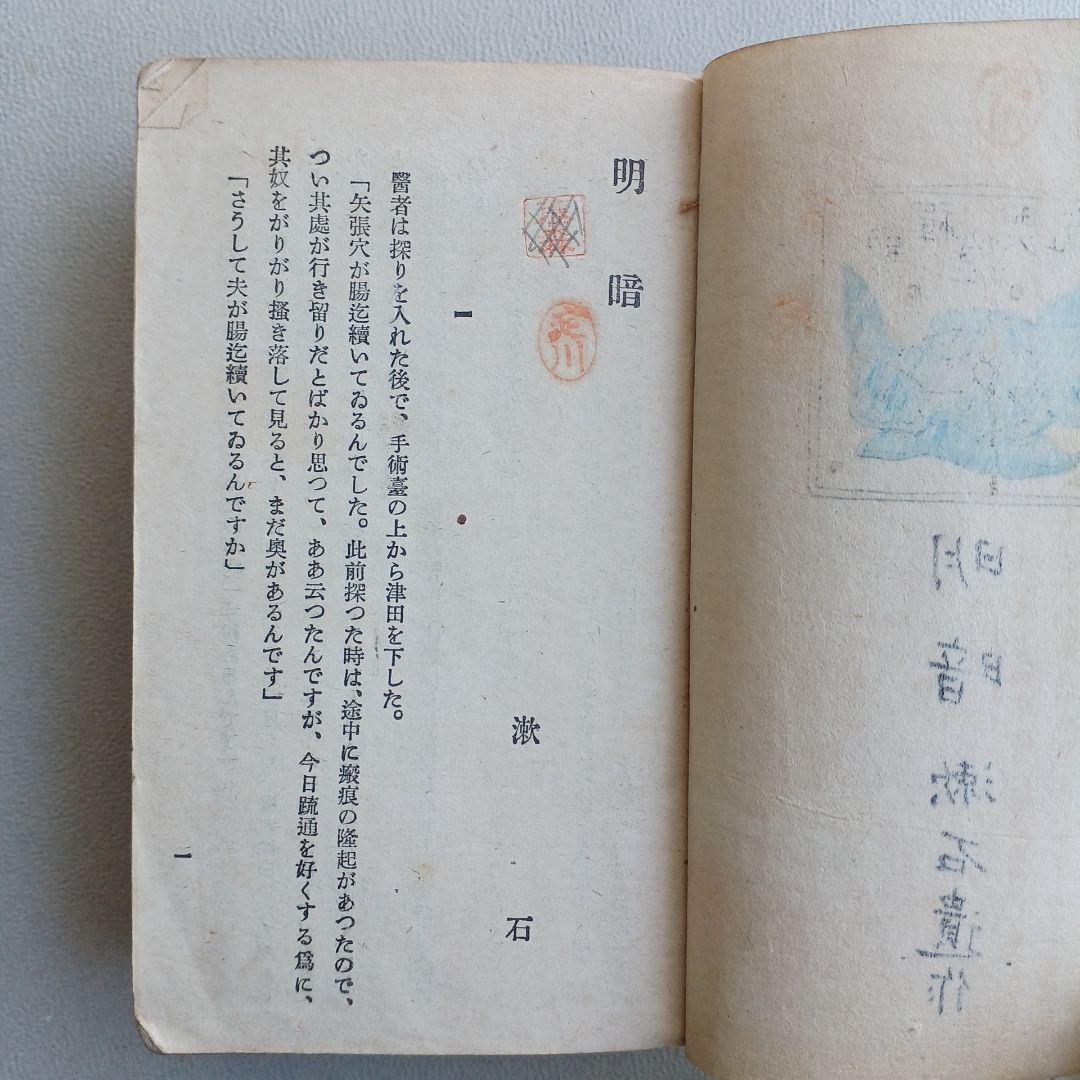 明暗
漱石
一
醫者は探りを入れた後で、手術臺の上から津田を下した。
「矢張穴が腸迄續いてゐるんでした。此前探つた時は、途中に瘢痕の隆起があつたので、
つい其處が行き留りだとばかり思つて、ああ云つたんですが、今日疏通を好くする爲に、
其奴をがりがり搔き落して見ると、まだ奧があるんです」
「さうして夫が腸迄續いてゐるんですか」
一
明暗
漱石遺作